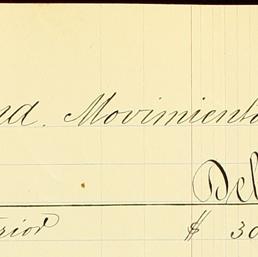 nd. Movimiento
Del
rior $ 30